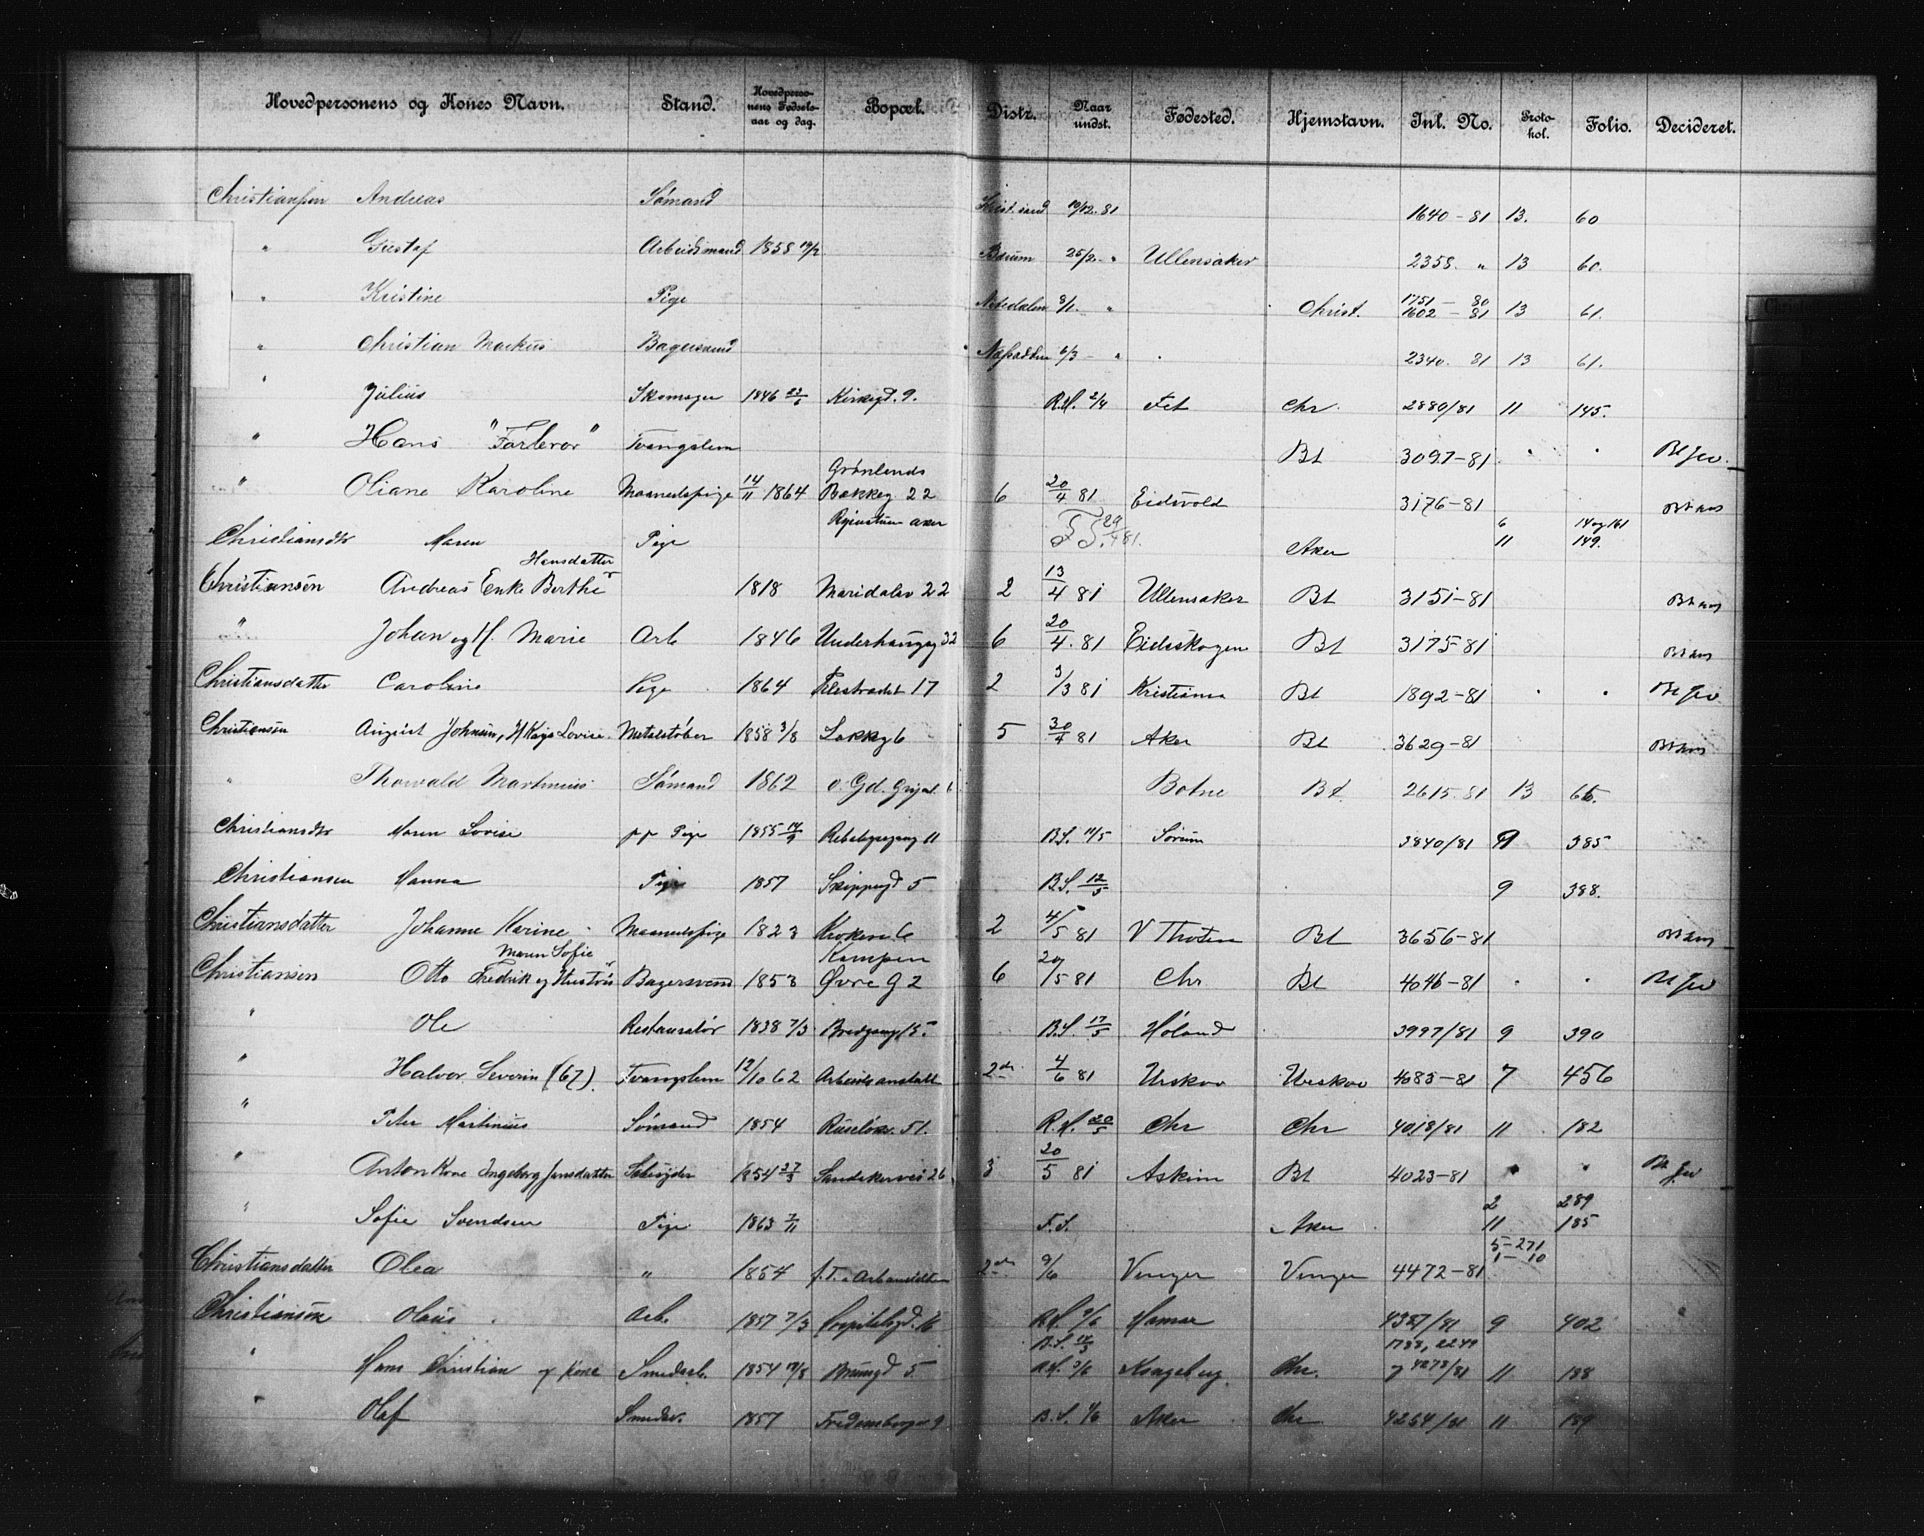 Hovedpersonens og Kones Navn. Stand. Hovedpersonens Fødselsaar og dag. Bopæl. Distr. Naar undst. Fødested. Hjemstavn. Inl. No. Protokol. Folio. Decideret.
Christianssen Andreas Sømand 81 1640-81 13. 60
" Gustaf Arbeidsmand 1858 19/2 Bærum 25/2 " Ullensaker 2358. " 13 60.
" Kristine Pige " Christ. 1751-80 1602-81 13 61.
" Christian Markus Bagersvend 6/3 - " 2340. 81 13 61.
" Julius Skomager 1846 23/6 Kirkegd. 9. R.H. 2/4 Fet Chr. 2880/81 11 145.
" Hans Tvangslem Bt 3097-81 " "
" Oliane Karoline Maanedspige 14/11 1864 Grønlands Bakkeg 22 6 20/4 81 Eidsvold 3176-81
Christiansdtr Maren Pige Aker F.S. 29/4 81. Aker 6 11 14 og 161 149.
Christiansen Andreas Enke Berthe Hansdatter 1818 Maridalsv 22 2 13/4 81 Ullensaker Bt 3151-81
" Johan og H. Marie Arb 1846 Underhaugsg 32 6 20/4. 81 Eidsskogen Bt 3175-81
Christiansdatter Caroline Pige 1864 Filestrædet 17 2 3/3 81 Kristiania Bt 1892-81 " "
Christiansen August Johnsen, H Kaja Lovise. Metalstøber 1858 3/8 Lakkeg 6 5 30/4 81 Aker Bt 3629-81
" Thorvald Martinius Sømand 1862 6 Botne Bt. 2615. 81 13 66.
Christiansdtr Maren Lovise pp Pige 1855 14/9 11 B.S. 11/5 Sørum 3840/81 9 385
Christiansen Hanna Pige 1857 Skippergd 5 B.S. 12/5 9 388.
Christiansdatter Johanne Karine Maanedspige 1823 Kroken 6 2 4/5 81 V Thoten Bt 3656-81
Christiansen Otto Fredrik og Hustru Maren Sofie Bagersvend 1853 Kampen Øvre G 2 6 20/5 81 Chr Bt 4046-81 " "
" Ole Restauratør 1838 7/3 B.S. 17/5 Høland 3997/81 9 390
" Halvor Severin (67). Tvangslem 12/10 62 Arbeidsanstalt 2den 4/6 81 Urskov Urskov 4085-81 7 456
" Peter Martinius Sømand 1854 Ruseløkv. 51. R.H. 20/5 Chr Chr 4018/81 11 182
" Anton Kone Ingeborg Jensdatter 1854 27/3 Sandakerveien 26 3 20/5 81 Askim Bt 4023-81 " "
" Sofie Svendsen Pige 1863 7/11 F.S. Aker 2 11 289 185
Christiansdatter Olea " 1854 2den 9/6 Vinger Vinger 4472-81 5-271 1-10
Christiansen Olaus Arb. 1857 7/3 16 R.H. 9/6 Hamar 4387/81 9 402
" Hans Christian og Kone Smedarb. 1854 5 R.H. Kongsberg Chr. 4273/81 11 188
" Olaf Smedsv. 1857 Fredensborgv 9 B.S. Aker Chr 4254/81 11 189